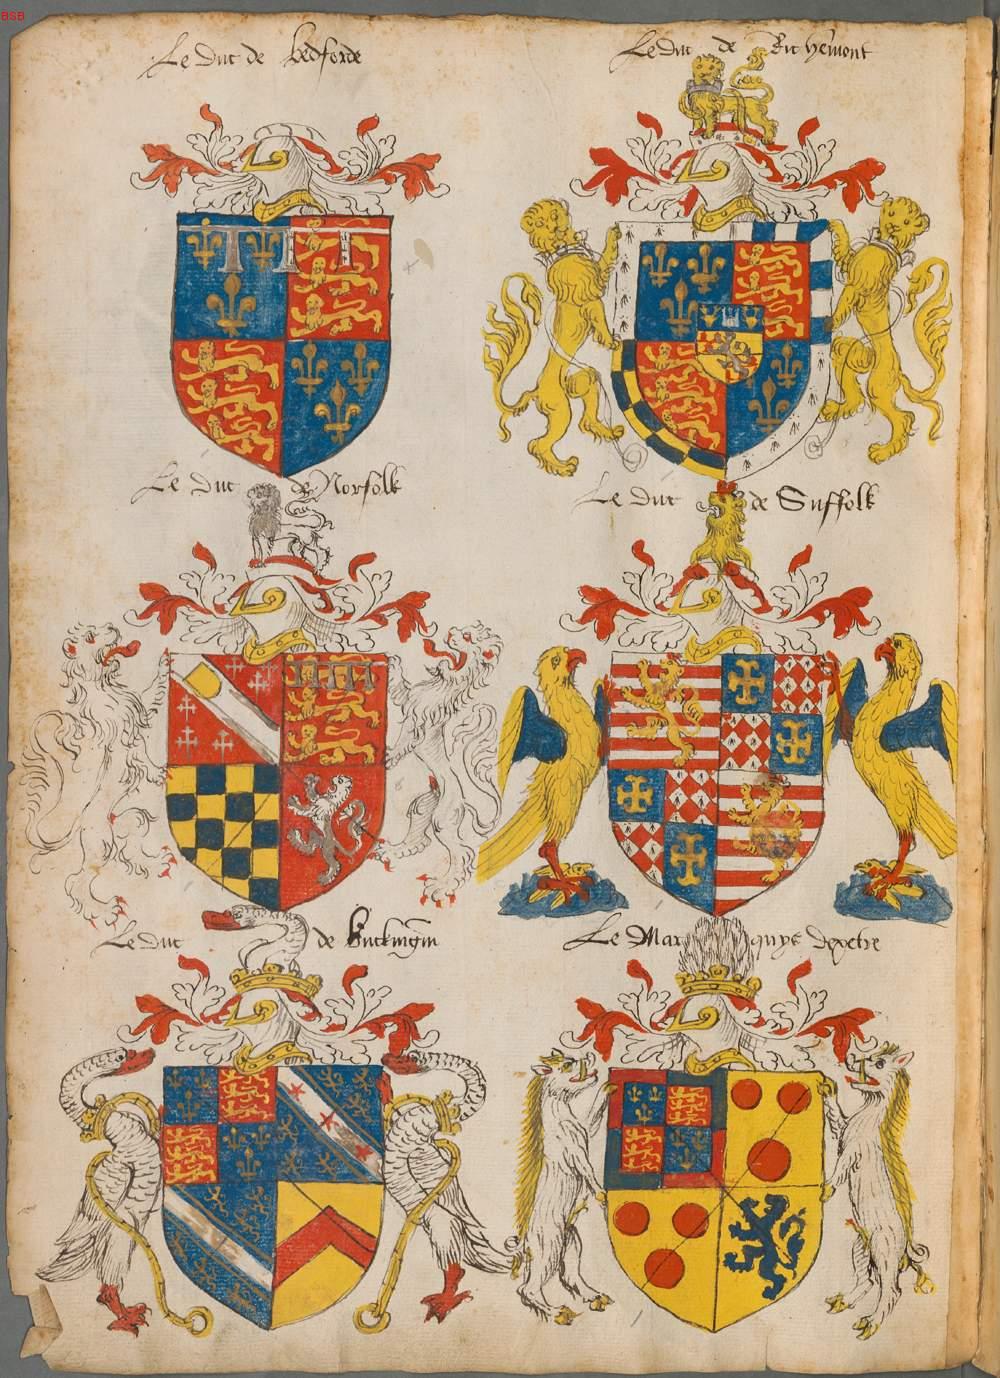 BSB
Le Duc de bedforde
Le Duc de Richemont
Le Duc de Norfolk
Le Duc de Suffolk
Le duc de buckingm
Le Mar quys